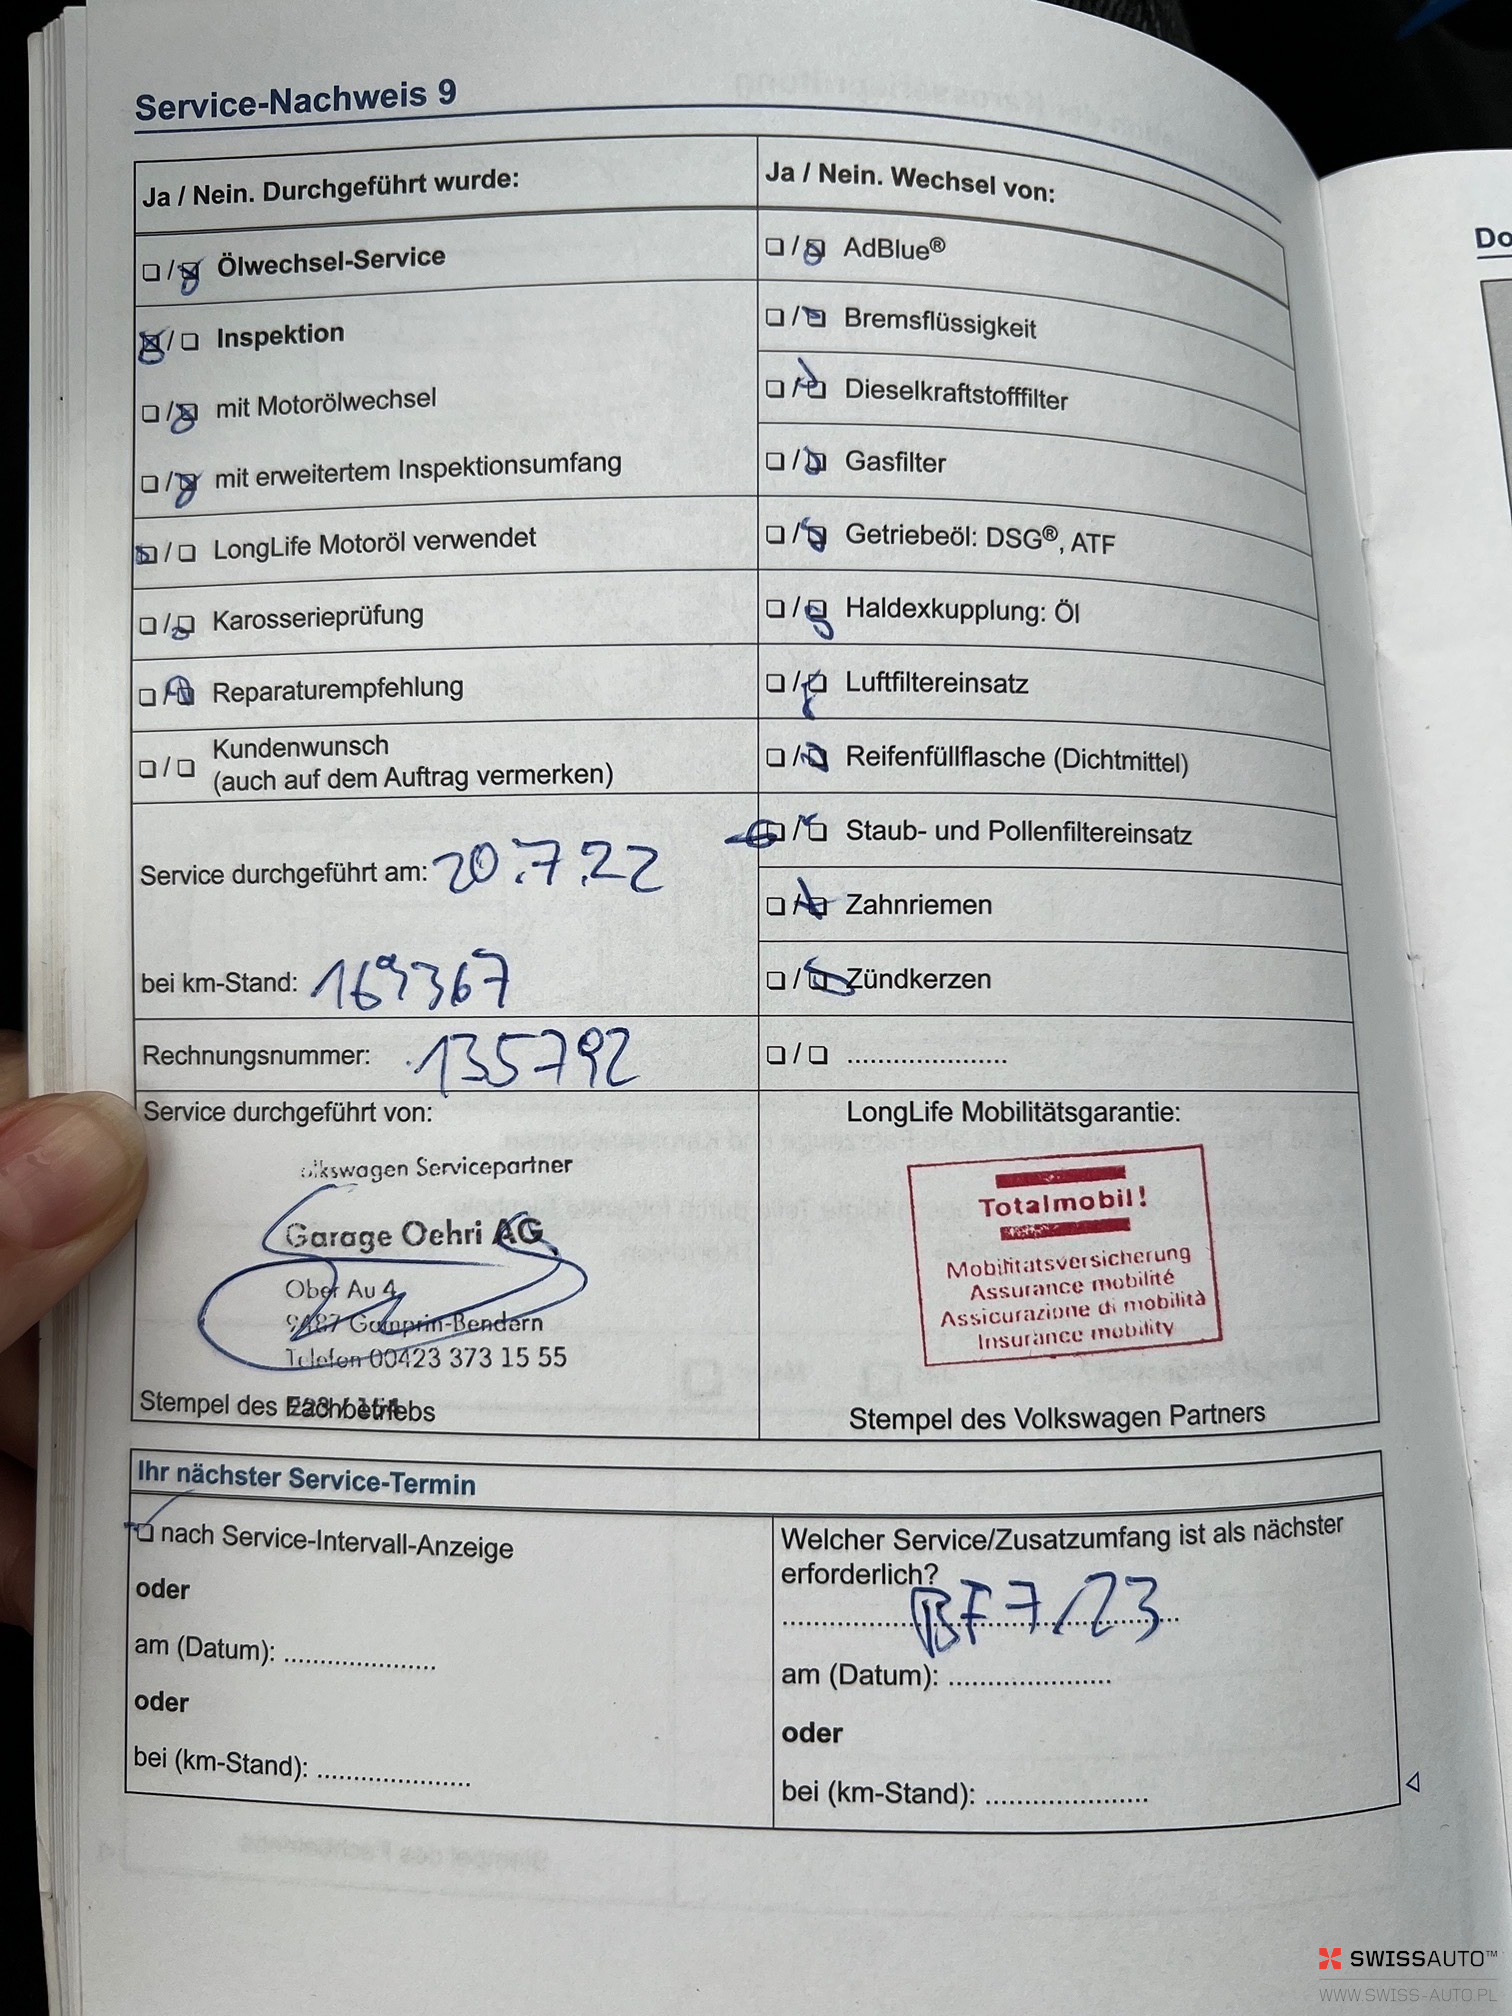 Service-Nachweis 9
Ja / Nein. Durchgeführt wurde:
☐ / ☒ Ölwechsel-Service
☒ / ☐ Inspektion
☐ / ☒ mit Motorölwechsel
☐ / ☒ mit erweitertem Inspektionsumfang
☒ / ☐ LongLife Motoröl verwendet
☐ / ☒ Karosserieprüfung
☐ / ☒ Reparaturempfehlung
☐ / ☐ Kundenwunsch
(auch auf dem Auftrag vermerken)
Service durchgeführt am: 20.7.22
bei km-Stand: 169367
Rechnungsnummer: 135792
Service durchgeführt von:
Volkswagen Servicepartner
Garage Oehri AG
Ober Au 4
9487 Gamprin-Bendern
Telefon 00423 373 15 55
Stempel des Fachbetriebs
Ja / Nein. Wechsel von:
☐ / ☒ AdBlue®
☐ / ☒ Bremsflüssigkeit
☐ / ☒ Dieselkraftstofffilter
☐ / ☒ Gasfilter
☐ / ☒ Getriebeöl: DSG®, ATF
☐ / ☒ Haldexkupplung: Öl
☐ / ☒ Luftfiltereinsatz
☐ / ☒ Reifenfüllflasche (Dichtmittel)
☒ / ☐ Staub- und Pollenfiltereinsatz
☐ / ☒ Zahnriemen
☐ / ☒ Zündkerzen
☐ / ☐ .....................
LongLife Mobilitätsgarantie:
Totalmobil!
Mobilitätsversicherung
Assurance mobilité
Assicurazione di mobilità
Insurance mobility
Stempel des Volkswagen Partners
Ihr nächster Service-Termin
☒ nach Service-Intervall-Anzeige
oder
am (Datum): .....................
oder
bei (km-Stand): .....................
Welcher Service/Zusatzumfang ist als nächster
erforderlich?
BF 7/23
am (Datum): .....................
oder
bei (km-Stand): .....................
Do
SWISSAUTO™
WWW.SWISS-AUTO.PL